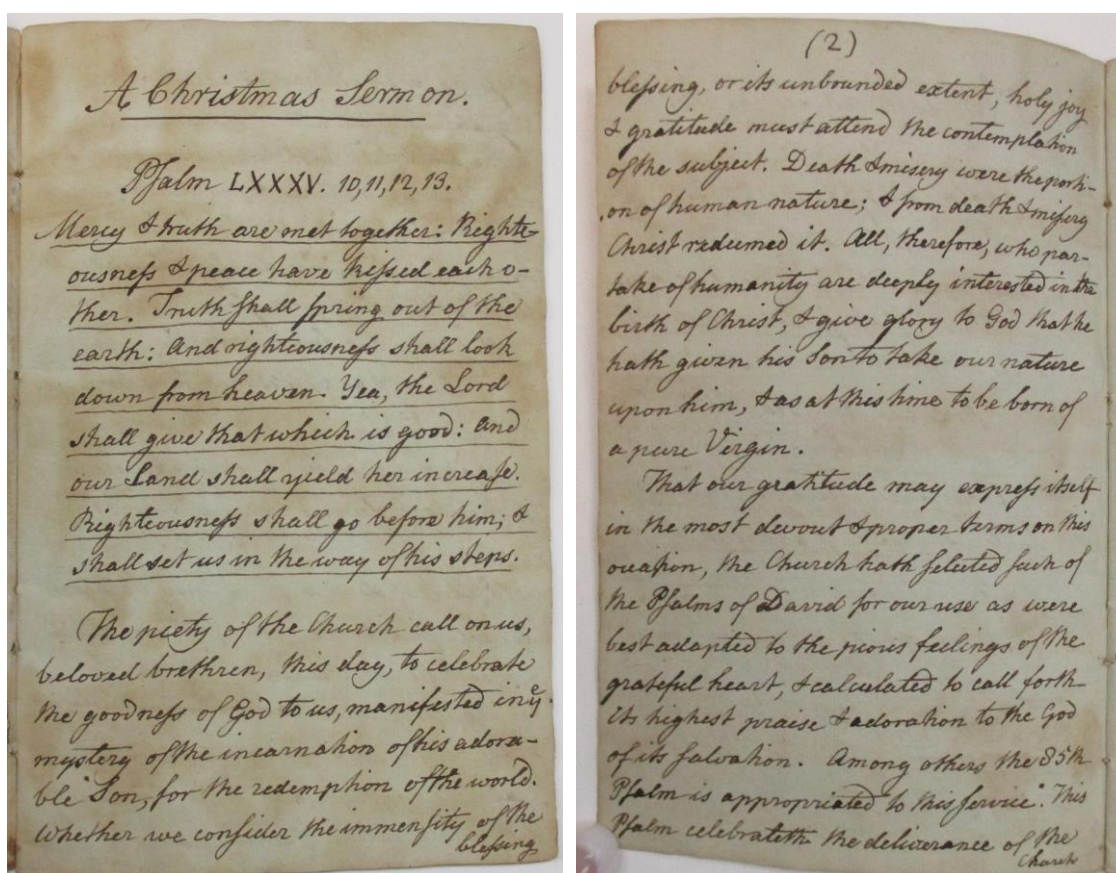 A Christmas Sermon.
Psalm LXXXV. 10, 11, 12, 13.
Mercy & truth are met together: Righte-
ousness & peace have kissed each o-
ther. Truth shall spring out of the
earth: And righteousness shall look
down from heaven. Yea, the Lord
shall give that which is good: And
our Land shall yield her increase.
Righteousness shall go before him; &
shall set us in the way of his steps.
The piety of the Church call on us,
beloved brethren, this day, to celebrate
the goodness of God to us, manifested in ye
mystery of the incarnation of his adora-
ble Son, for the redemption of the world.
Whether we consider the immensity of the
blessing
(2)
blessing, or its unbounded extent, holy joy
& gratitude must attend the contemplation
of the subject. Death & misery were the porti-
on of human nature; & from death & misery
Christ redeemed it. All, therefore, who par-
take of humanity are deeply interested in the
birth of Christ, & give glory to God that he
hath given his Son to take our nature
upon him, & as at this time to be born of
a pure Virgin.
That our gratitude may express itself
in the most devout & proper terms on this
occasion, the Church hath selected such of
the Psalms of David for our use as were
best adapted to the pious feelings of the
grateful heart, & calculated to call forth
its highest praise & adoration to the God
of its salvation. Among others the 85th
Psalm is appropriated to this service. This
Psalm celebrateth the deliverance of the
Church